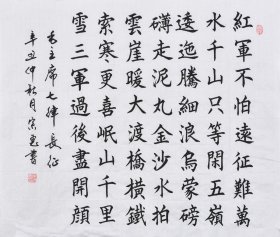 紅軍不怕遠征難萬
水千山只等閑五嶺
逶迤騰細浪烏蒙磅
礴走泥丸金沙水拍
雲崖暖大渡橋橫鐵
索寒更喜岷山千里
雪三軍過後盡開顏
毛主席七律長征
辛丑仲秋月宗書